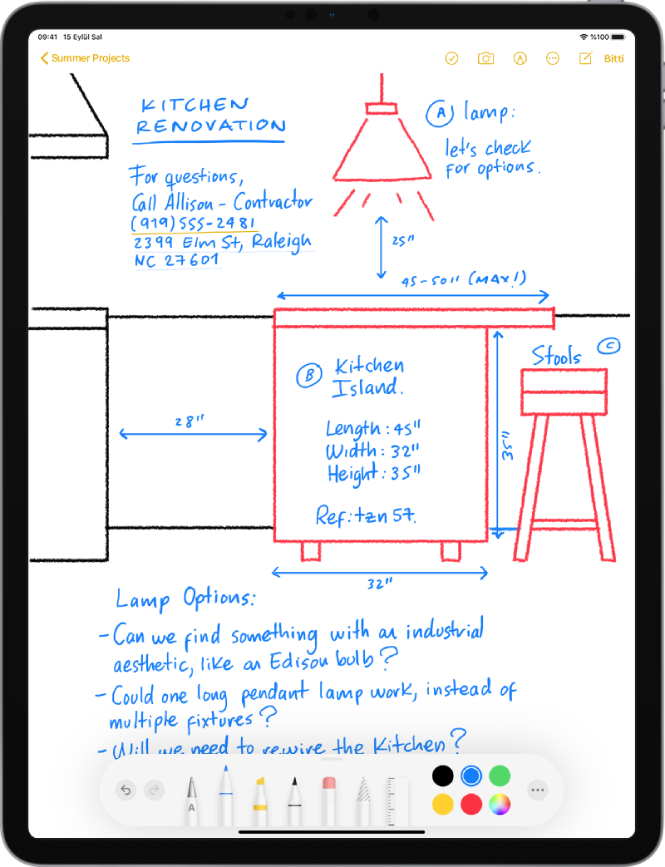 09:41 15 Eylül Sal %100
Summer Projects
Bitti
KITCHEN
RENOVATION
A lamp:
let's check
for options.
For questions,
Call Allison - Contractor
(919)555-2481
2399 Elm St, Raleigh
NC 27601
25"
45-50" (MAX!)
28"
B Kitchen
Island.
Length: 45"
Width: 32"
Height: 35"
Ref: tzn 57.
35"
Stools C
32"
Lamp Options:
- Can we find something with an industrial
aesthetic, like an Edison bulb?
- Could one long pendant lamp work, instead of
multiple fixtures?
- Will we need to rewire the Kitchen?
A